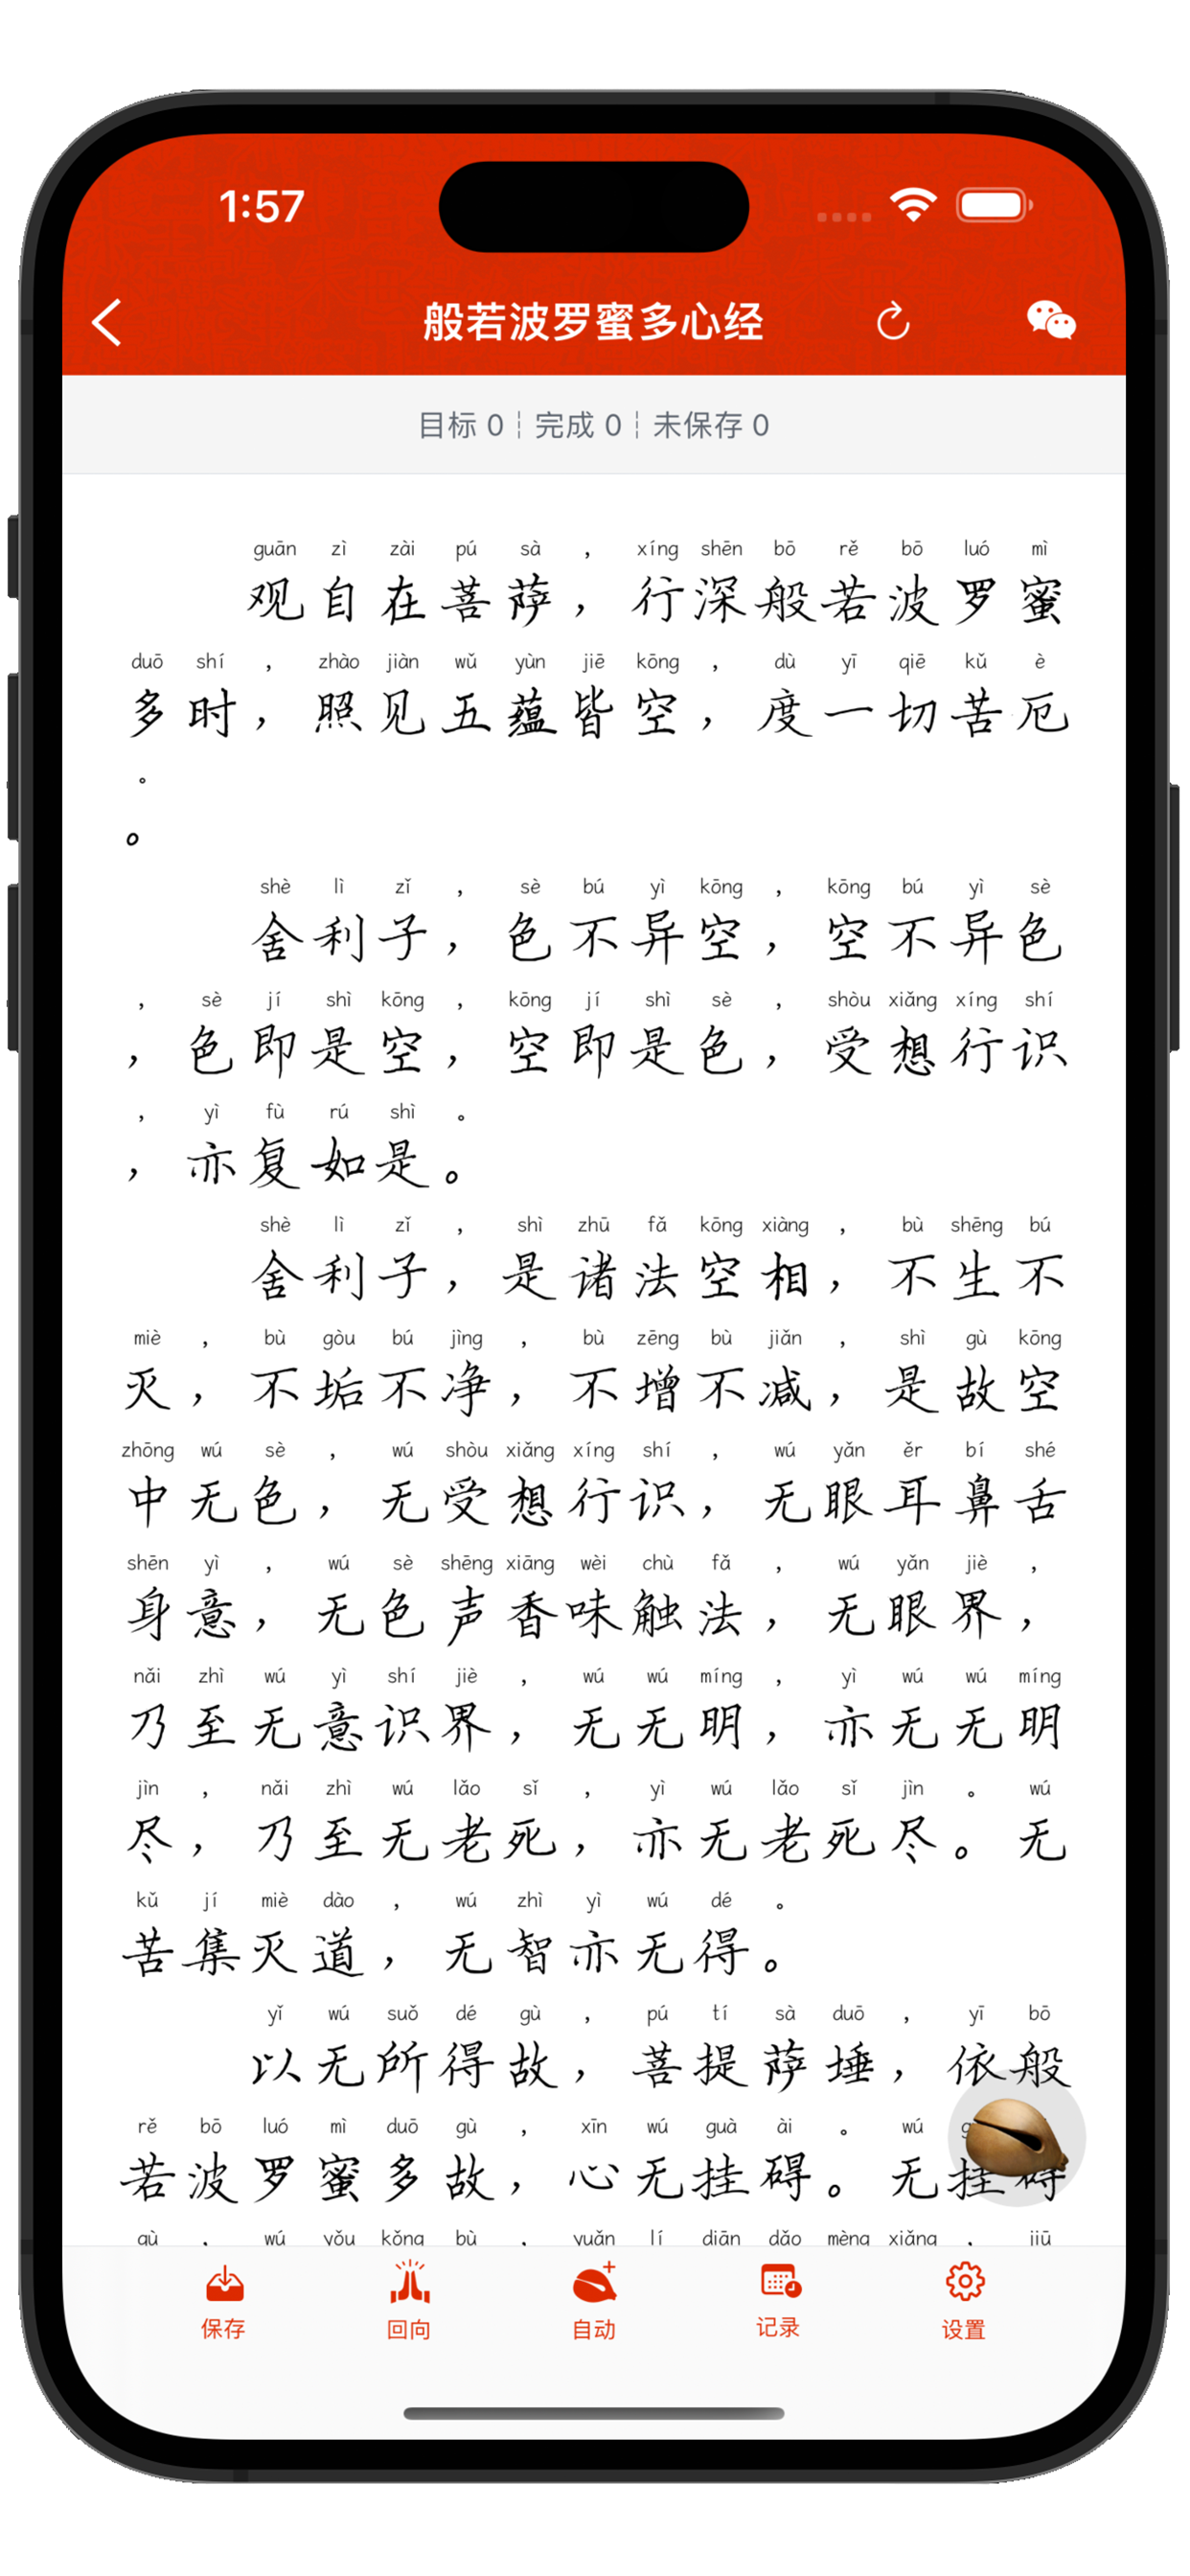 1:57
般若波罗蜜多心经
目标 0 ┆ 完成 0 ┆ 未保存 0
guān zì zài pú sà , xíng shēn bō rě bō luó mì
观自在菩萨，行深般若波罗蜜
duō shí , zhào jiàn wǔ yùn jiē kōng , dù yī qiē kǔ è
多时，照见五蕴皆空，度一切苦厄
。
。
shè lì zǐ , sè bú yì kōng , kōng bú yì sè
舍利子，色不异空，空不异色
, sè jí shì kōng , kōng jí shì sè , shòu xiǎng xíng shí
，色即是空，空即是色，受想行识
, yì fù rú shì 。
，亦复如是。
shè lì zǐ , shì zhū fǎ kōng xiàng , bù shēng bú
舍利子，是诸法空相，不生不
miè , bù gòu bú jìng , bù zēng bù jiǎn , shì gù kōng
灭，不垢不净，不增不减，是故空
zhōng wú sè , wú shòu xiǎng xíng shí , wú yǎn ěr bí shé
中无色，无受想行识，无眼耳鼻舌
shēn yì , wú sè shēng xiāng wèi chù fǎ , wú yǎn jiè ,
身意，无色声香味触法，无眼界，
nǎi zhì wú yì shí jiè , wú wú míng , yì wú wú míng
乃至无意识界，无无明，亦无无明
jìn , nǎi zhì wú lǎo sǐ , yì wú lǎo sǐ jìn 。 wú
尽，乃至无老死，亦无老死尽。无
kǔ jí miè dào , wú zhì yì wú dé 。
苦集灭道，无智亦无得。
yǐ wú suǒ dé gù , pú tí sà duō , yī bō
以无所得故，菩提萨埵，依般
rě bō luó mì duō gù , xīn wú guà ài 。 wú
若波罗蜜多故，心无挂碍。无挂碍
gù , wú yǒu kǒng bù , yuǎn lí diān dǎo mèng xiǎng , jiū
保存 回向 自动 记录 设置